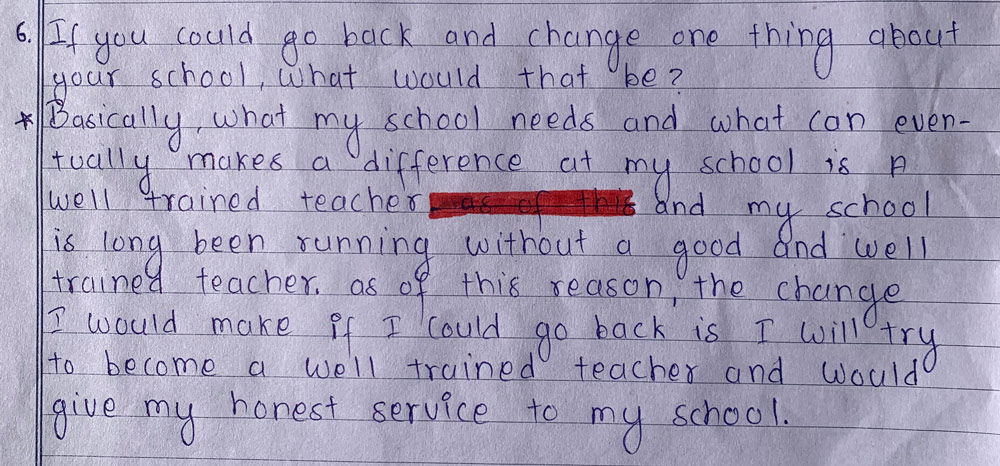 6. If you could go back and change one thing about
your school, what would that be?
* Basically, what my school needs and what can even-
tually makes a difference at my school is A
well trained teacher as of this and my school
is long been running without a good and well
trained teacher. as of this reason, the change
I would make if I could go back is I will try
to become a well trained teacher and would
give my honest service to my school.